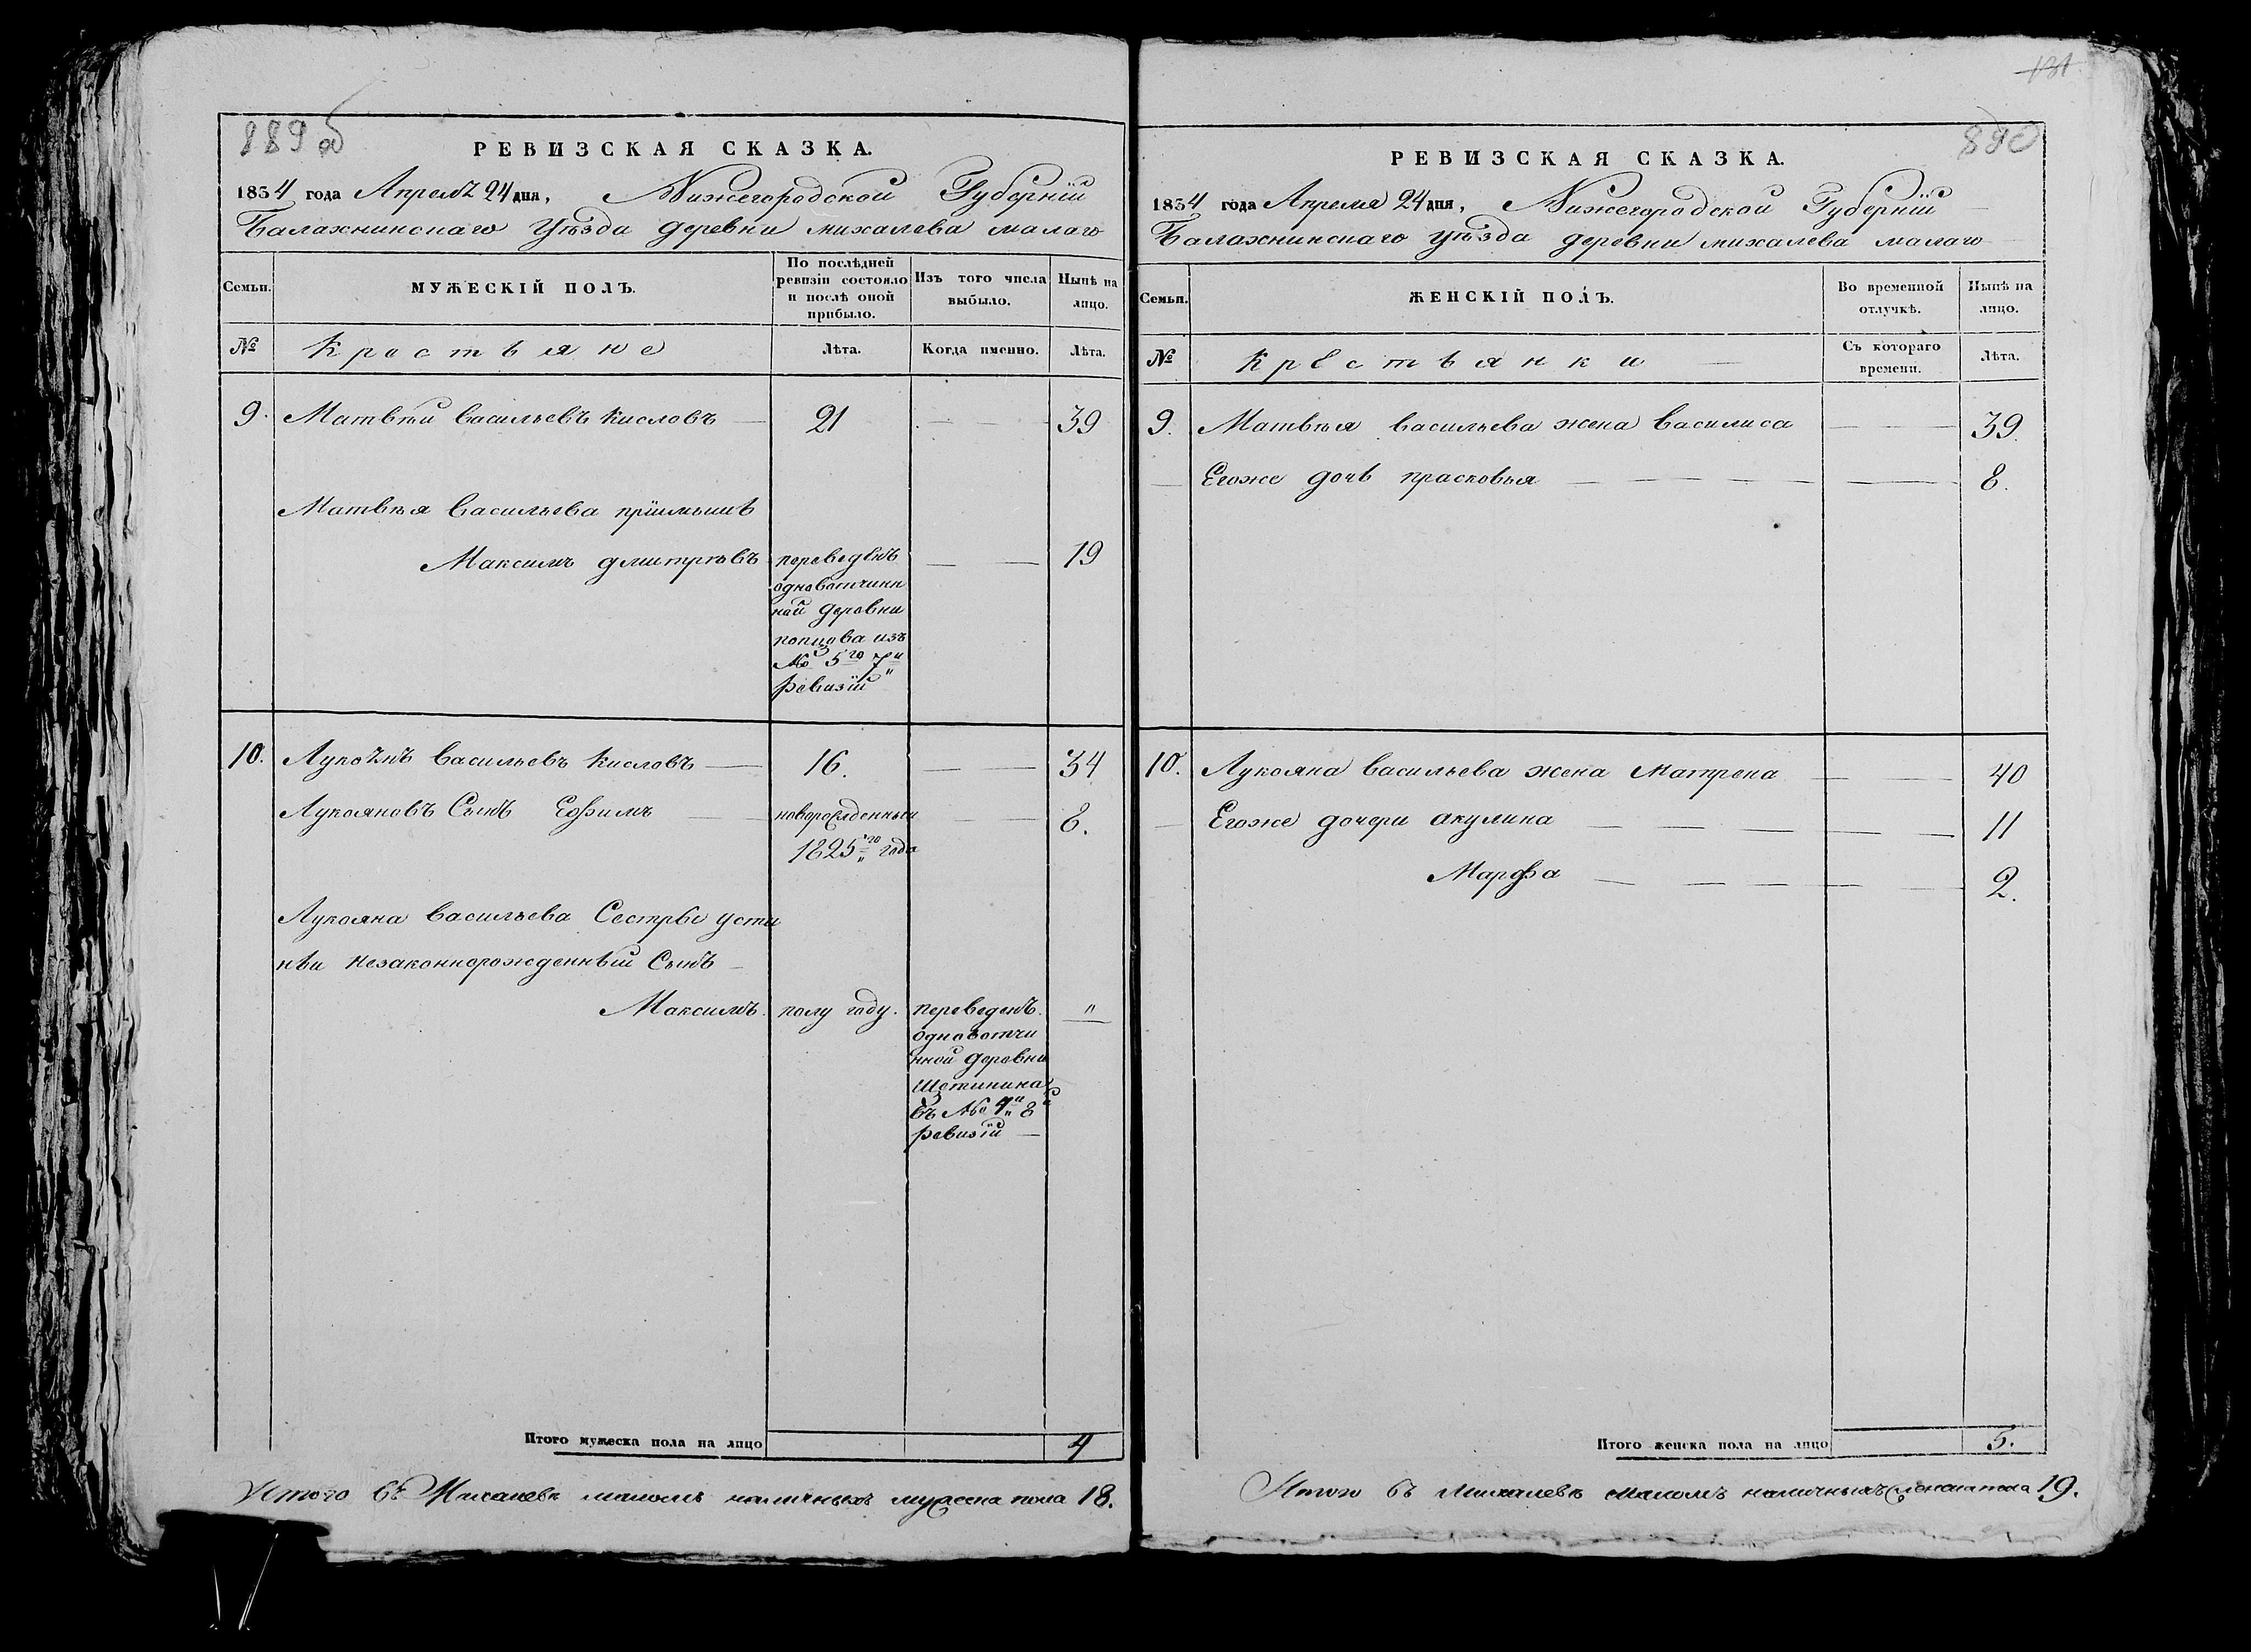 889 об
РЕВИЗСКАЯ СКАЗКА.
1834 года Апреля 24 дня, Нижегородской Губернїи
Балахнинскаго уѣзда деревни михалева малаго
Семьи.
МУЖЕСКІЙ ПОЛЪ.
По послѣдней ревизіи состояло и послѣ оной прибыло.
Изъ того числа выбыло.
Нынѣ на лицо.
№
Крестьяне
Лѣта.
Когда именно.
Лѣта.
9. Матвѣи васильевъ кисловъ 21 39
Матвѣя васильева прїимышъ
Максимъ дмитрѣевъ 19
переведенъ
одновотчинн
ной деревни
изъ
№ 5го 7й
ревизїи
10. Лукоянъ васильевъ кисловъ 16. 34
Лукояновъ Сынъ Ефимъ новорожденный 8.
1825го года
Лукояна васильева Сестры усти
ньи незаконнорожденный Сынъ
Максимъ. полу году. "
переведенъ
одновотчи
нной деревни
Щетинина
въ № 4й 8й
ревизїи
Итого мужеска пола на лицо 4
Итого въ Михалеве маломъ наличныхъ мужеска пола 18.
131
890
РЕВИЗСКАЯ СКАЗКА.
1834 года Апреля 24 дня, Нижегородской Губернїи
Балахнинскаго уѣзда деревни михалева малаго
Семьи.
ЖЕНСКІЙ ПОЛЪ.
Во временной отлучкѣ.
Нынѣ на лицо.
№
Крестьянки
Съ котораго времени.
Лѣта.
9. Матвѣя васильева жена василиса 39.
Егоже дочь прасковья 8.
10. Лукояна васильева жена матрена 40
Егоже дочери акулина 11
Марфа 2.
Итого женска пола на лицо 5.
Итого въ Михалеве маломъ наличныхъ женска пола 19.